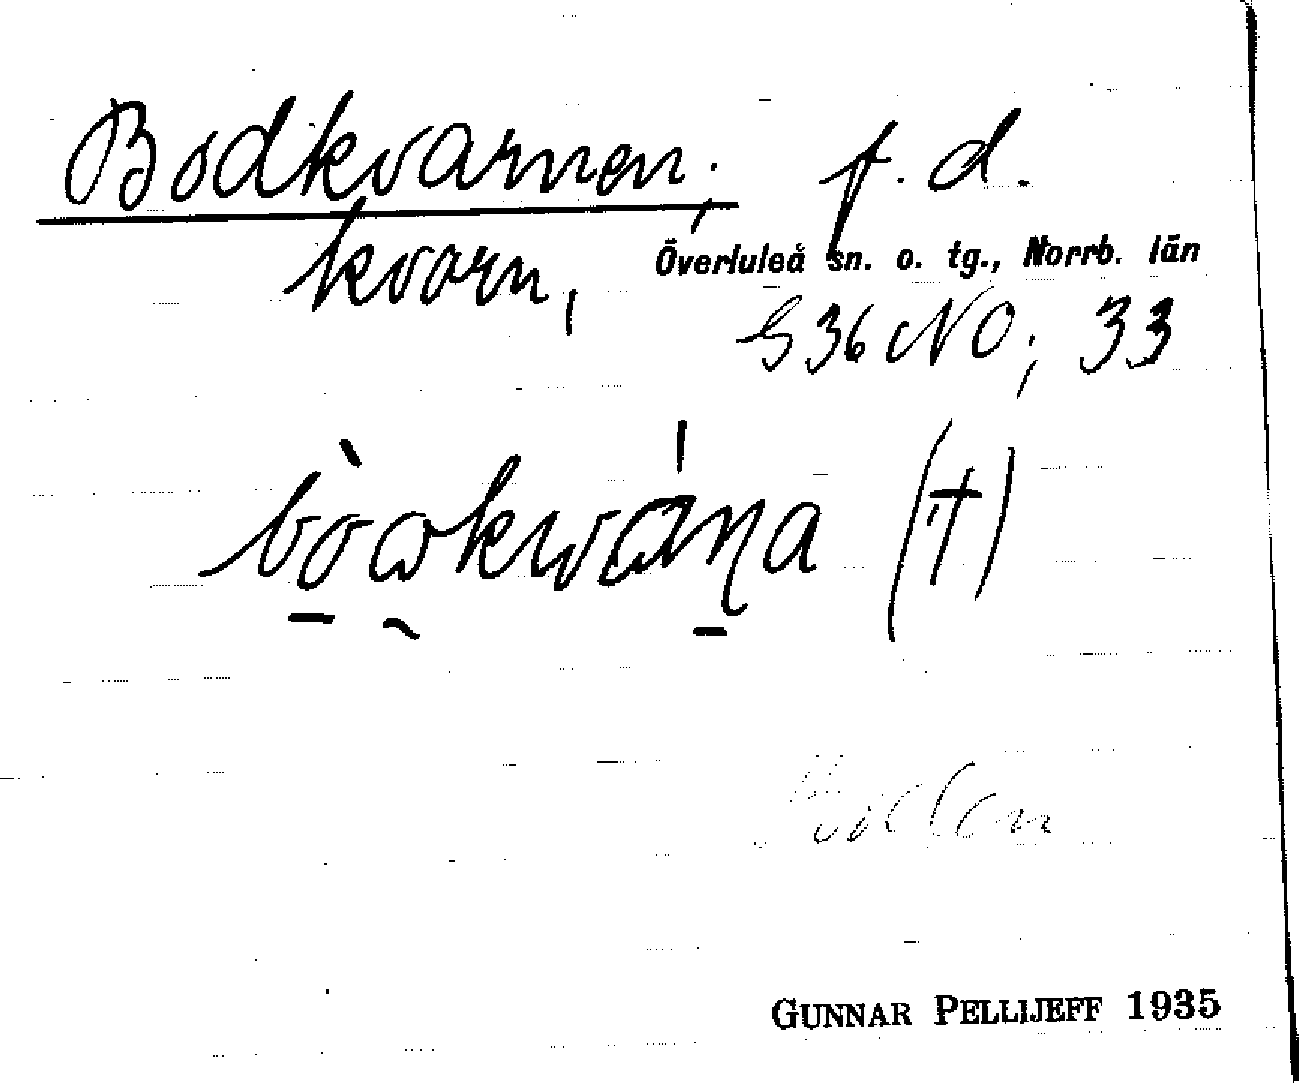 Bodkvarnen; f.d.
kvarn,
Överluleå sn. o. tg., Norrb. län
S 36 NO; 33
(†)
GUNNAR PELLIJEFF 1935